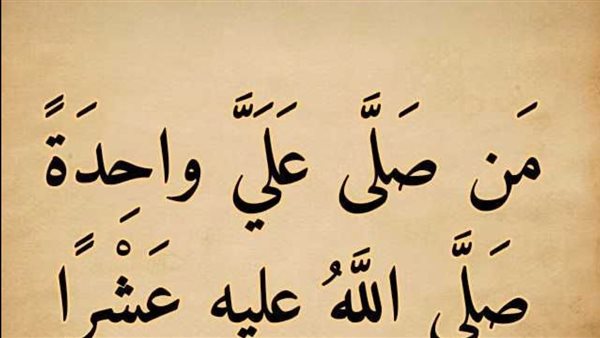 مَن صَلَّى عَلَيَّ واحِدَةً
صَلَّى اللَّهُ عليه عَشْرًا